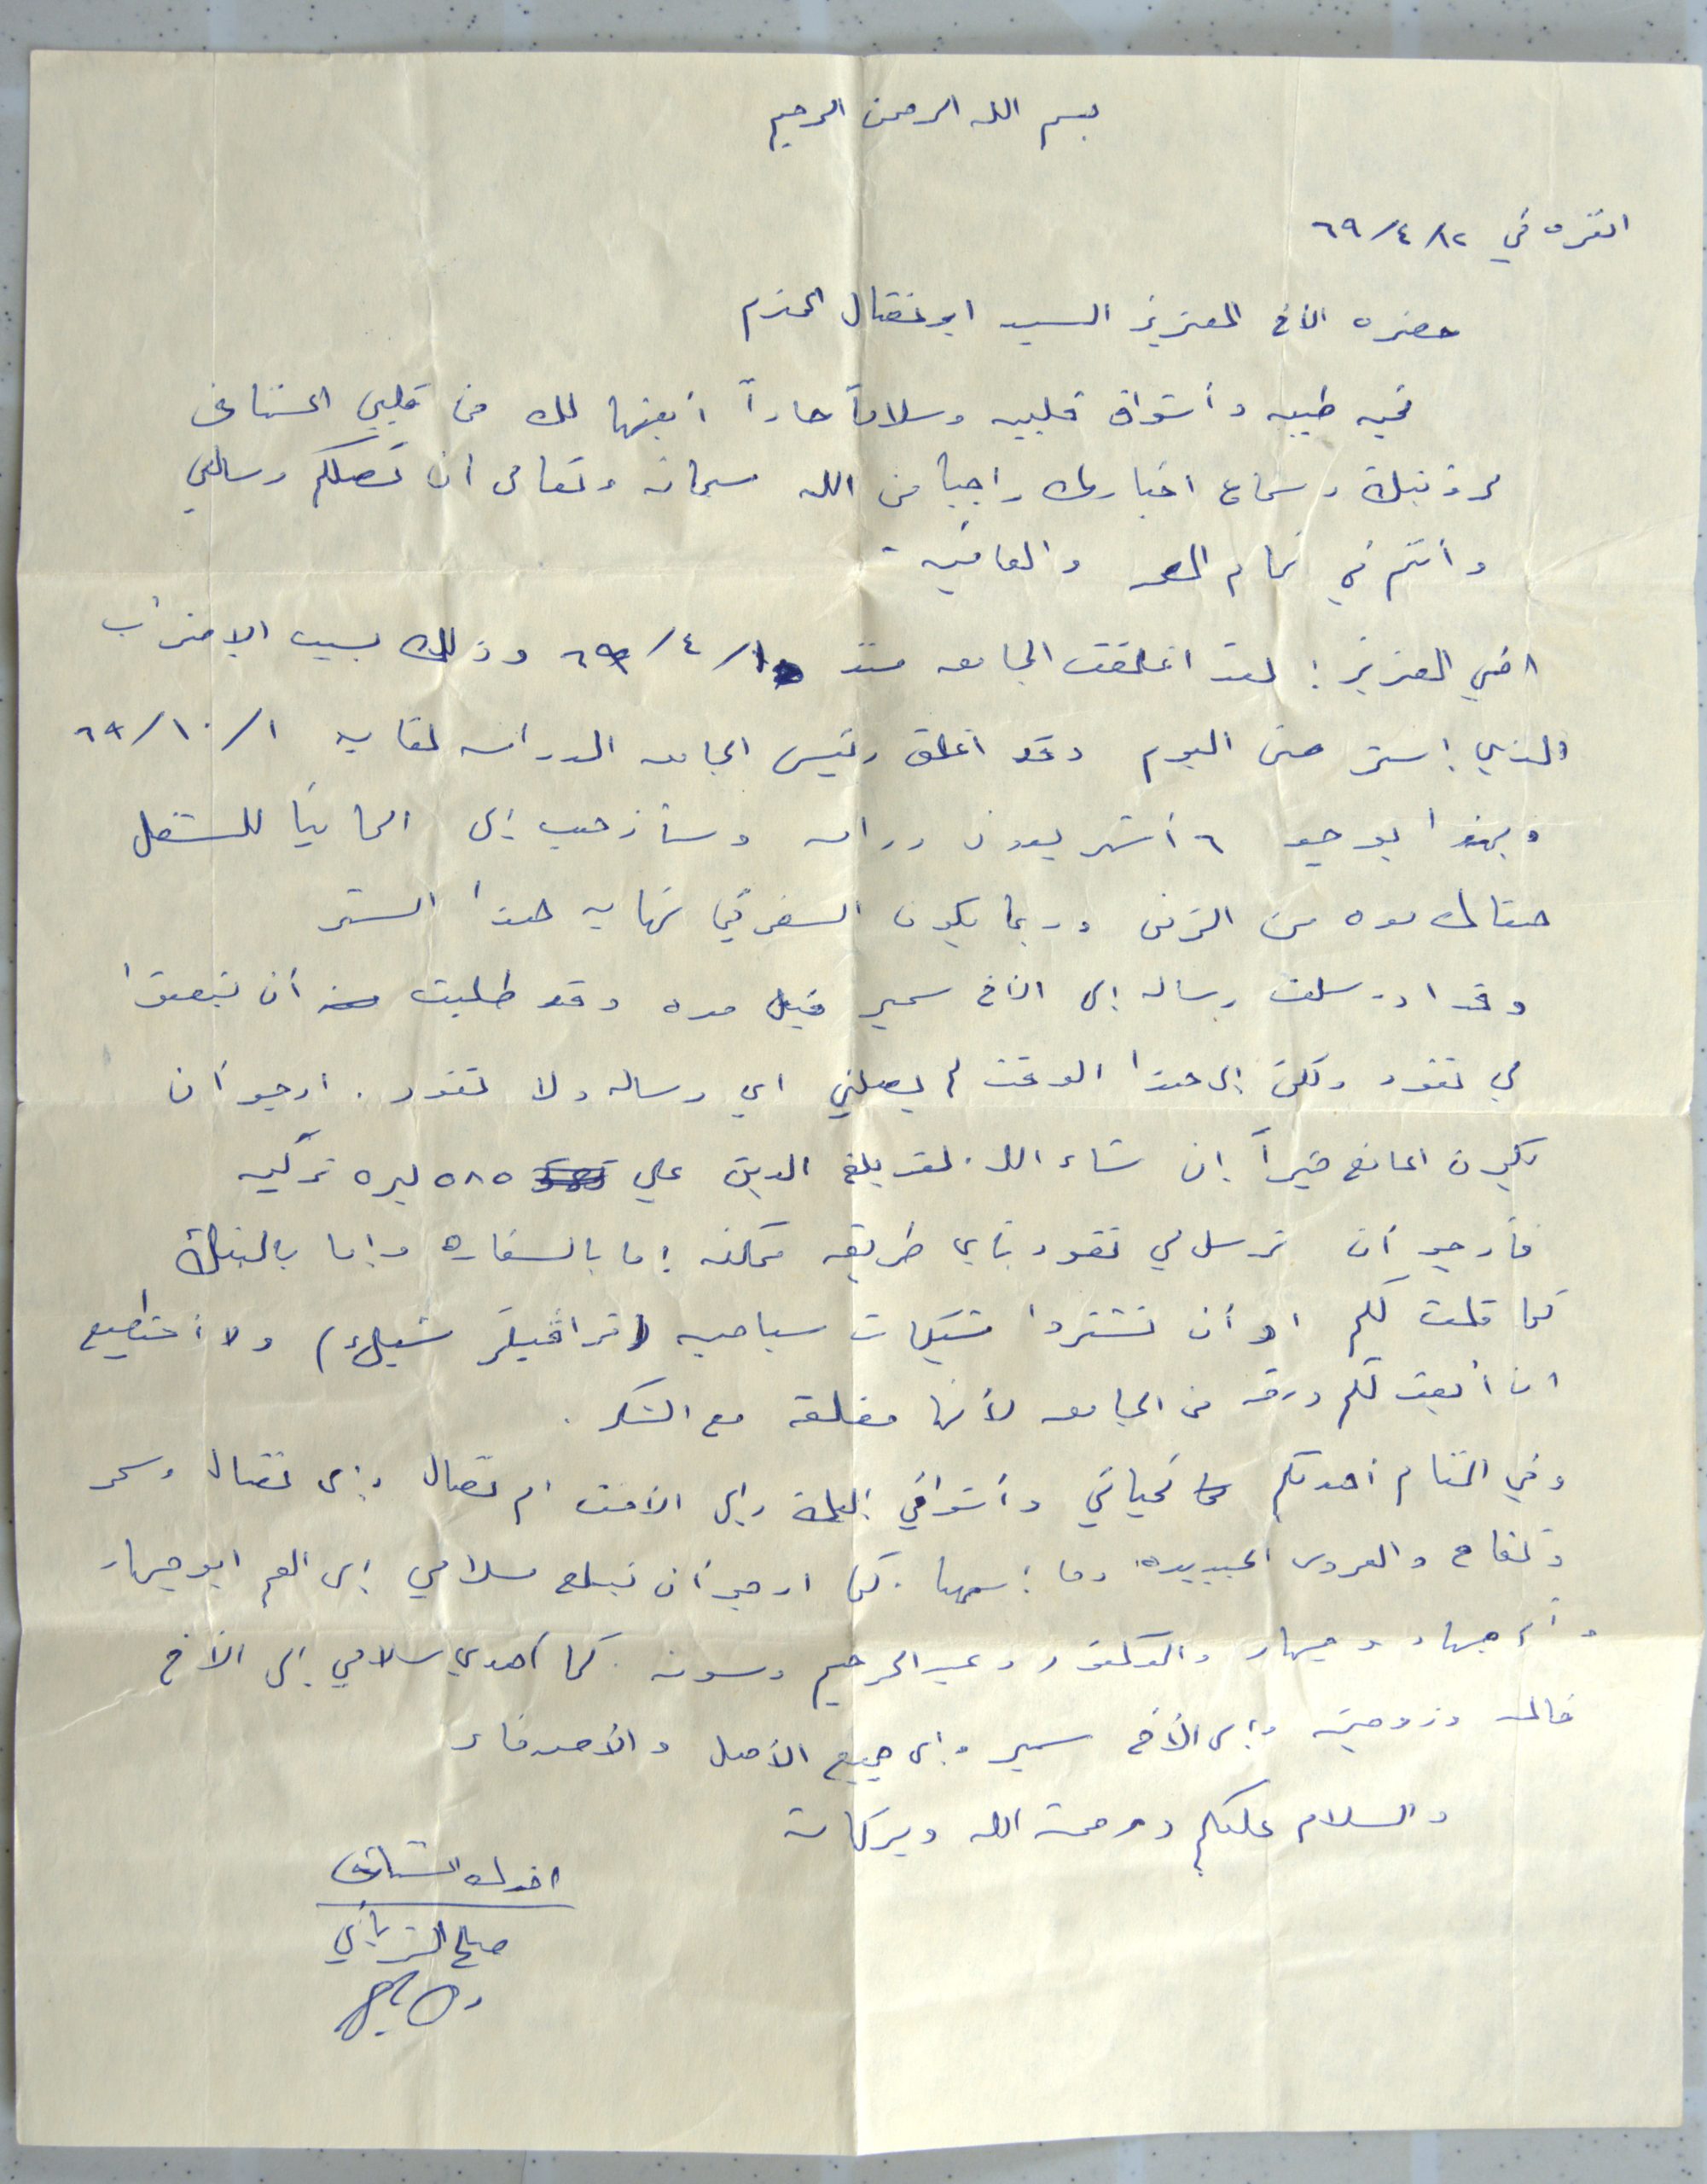 بسم الله الرحمن الرحيم
انقره في ١٢/٤/٦٩
حضره الأخ العزيز السيد ابو نضال المحترم
تحيه طيبه وأشواق قلبيه وسلاماً حاراً أبعثها لك من قلبي المشتاق
لرؤيتك وسماع اخبارك راجيا من الله سبحانه وتعالى ان تصلكم رسالتي
وأنتم في تمام الصحه والعافيه
اخي العزيز: لقد اغلقت الجامعه منذ ٤/ وذلك بسبب الإضراب
الذي إستمر حتى اليوم وقد اغلق رئيس الجامعه الدراسه لغايه ١/١٠/٦٩
وبهذا يوجد ٦ أشهر بدون دراسه وسأذهب إلى المانيا للشغل
هنالك مده من الزمن وربما يكون السفر في نهايه هذا الشهر
وقد ارسلت رساله إلى الأخ سمير قبل مده وقد طلبت منه أن تبعثوا
لي نقود ولكن إلى هذا الوقت لم يصلني اي رساله ولا نقود. ارجو أن
يكون المانع خيراً إن شاء الله. لقد بلغ الدين علي ٥٨٥ ليره تركيه
فأرجو أن ترسل لي نقود بأي طريقه ممكنه إما بالسفاره وإما بالبنك
كما قلت لكم او أن تشتروا شيكات سياحيه (ترافيلر شيك) ولا أستطيع
ان أبعث لكم ورقه من الجامعه لأنها مغلقة مع الشكر.
وفي الختام أهديكم تحياتي وأشواقي إليك وإلى الأخت ام نضال وإلى نضال وسحر
وكفاح والعروس الجديده وما إسمها. كما ارجو أن تبلغ سلامي إلى العم ابو جهاد
وأم جهاد وجهاد والدكتور وعبد الرحيم وسونه. كما أهدي سلامي إلى الأخ
خالد وزوجته وإلى الأخ سمير وإلى جميع الأهل والأصدقاء
والسلام عليكم ورحمة الله وبركاته
اخوك المشتاق